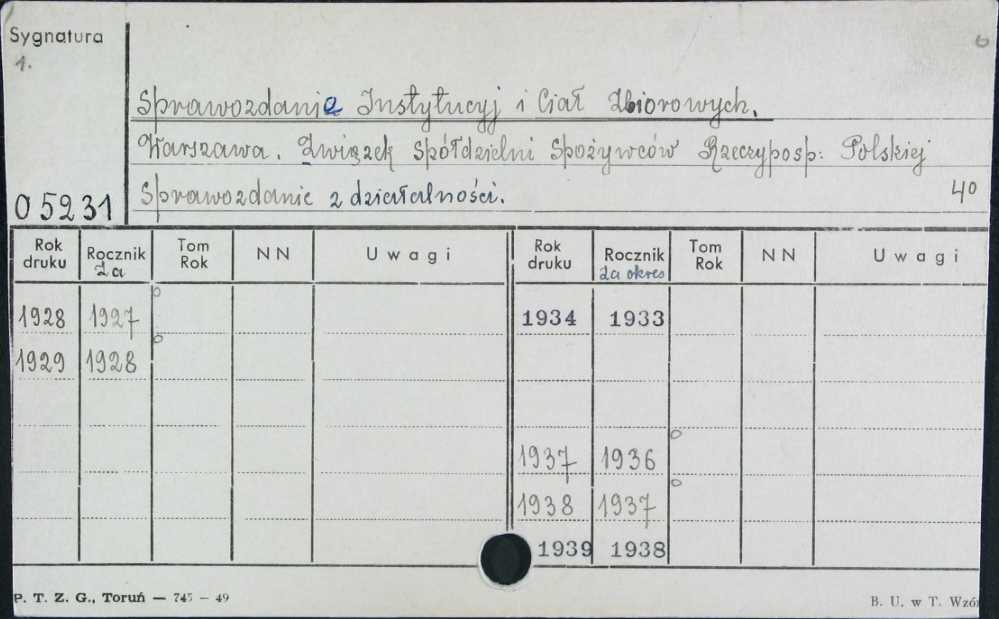 Sygnatura 6
1.
Sprawozdania Instytucyj i Ciał Zbiorowych.
Warszawa. Związek Spółdzielni Spożywców Rzeczyposp: Polskiej
05231 Sprawozdanie z działalności. 4º
Rok druku Rocznik za Tom Rok NN Uwagi Rok druku Rocznik za okres Tom Rok NN Uwagi
1928 1927 1934 1933
1929 1928
1937 1936
1938 1937
1939 1938
P. T. Z. G., Toruń — 745 — 49 B. U. w T. Wzór